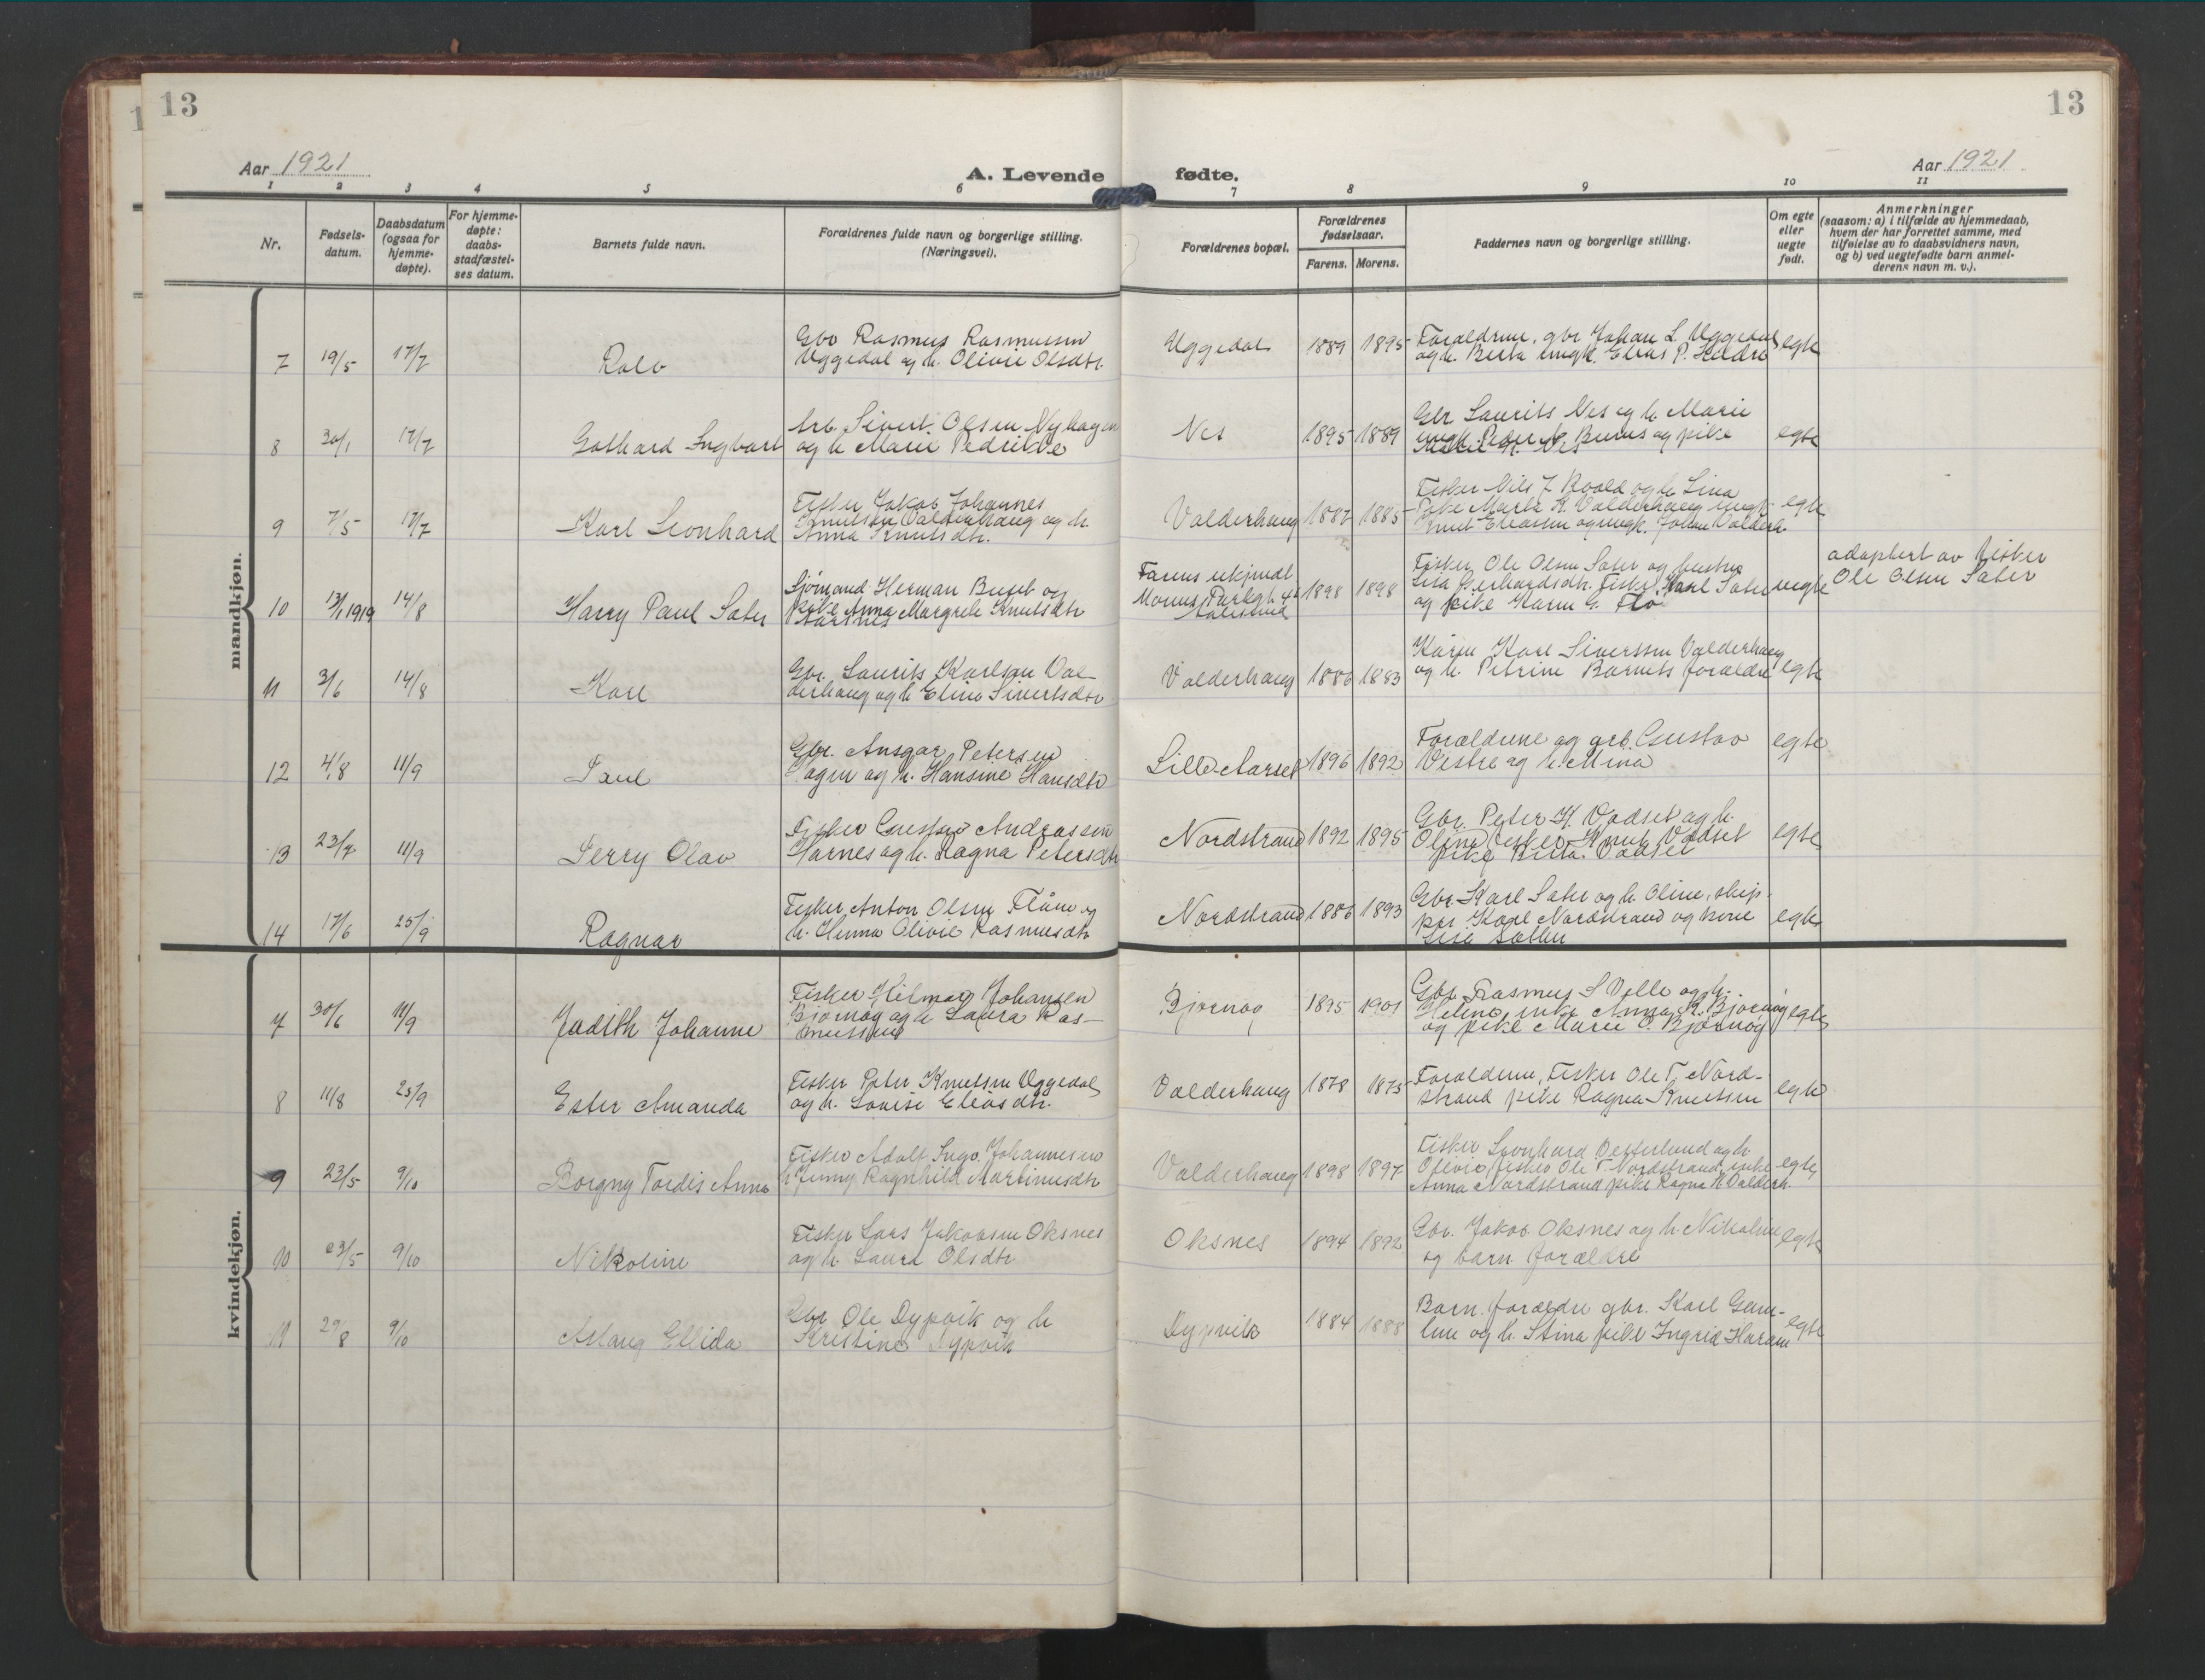 13
13
Aar 1921
A. Levende fødte.
Aar 1921
1 2 3 4 5 6 7 8 9 10 11
Nr.
Fødsels-
datum.
Daabsdatum
(ogsaa for
hjemme-
døpte).
For hjemme-
døpte:
daabs-
stadfæstel-
ses datum.
Barnets fulde navn.
Forældrenes fulde navn og borgerlige stilling.
(Næringsvei).
Forældrenes bopæl.
Forældrenes
fødselsaar.
Farens. Morens.
Faddernes navn og borgerlige stilling.
Om egte
eller
uegte
født.
Anmerkninger
(saasom: a) i tilfælde av hjemmedaab,
hvem der har forrettet samme, med
tilføielse av to daabsvidners navn,
og b) ved uegtefødte barn anmel-
derens navn m. v.).
mandkjøn.
7 19/5 17/7 Rolv
Gbr Rasmus Rasmussen
Uggedal og h. Olivie Olsdtr.
Uggedal 1889 1895
Forældrene, gbr Johan L. Uggedal
og h. Berta ungk. Elias P. Hildre
egte
8 30/1 17/7 Gothard Ingvart
Arb. Sivert Olsen Nyhagen
og h Marie Pedrikke
Nes 1895 1889
Gbr Laurits Nes og h. Marie
ungk. Peder Burns og pike
Nes
egte
9 7/5 17/7 Karl Leonhard
Fisker Jakob Johannes
Knutsen Valderhaug og h.
Anna Knutsdtr.
Valderhaug 1887 1885
Fisker Nils J. Roald og h. Lina
Pike Marta K. Valderhaug ungk.
Knut Eliassen og ungk. Johan Valderh.
egte
10 13/1 1919 14/8 Harry Paul Sater
Sjømand Herman Buset og
pike Anna Margrete Knutsdtr
Aarsnes
Farens ukjendt
Morens Parkgt. 4
Aalesund
1898 1898
Fisker Ole Olsen Sater og hustru
Lisa Gerhardsdtr. Fisker Karl Sater
og pike Karen G. Flø
uegte
adoptert av fisker
Ole Olsen Sater
11 3/6 14/8 Karl
Gbr. Laurits Karlsen Val-
derhaug og h Elina Sivertsdtr
Valderhaug 1886 1883
Kårm Karl Siverssen Valderhaug
og h. Petrine Barnets forældre
egte
12 4/8 11/9 Paul
Gbr. Ansgar Petersen
Fagn og h. Hansine Hansdtr
Lille-Aarset 1896 1892
Forældrene og arb. Gustav
Vestre og h. Mina
egte
13 23/7 11/9 Perry Olav
Fisker Gustav Andreassen
Harnes og h. Ragna Petersdtr
Nordstrand 1892 1895
Gbr. Peter H. Vadset og h.
Olina fisker Knut Vadset
pike Berta Vadset
egte
14 17/6 25/9 Ragnar
Fisker Anton Olsen Flåem og
h. Emma Olivie Rasmusdtr
Nordstrand 1886 1893
Gbr. Karl Sater og h. Oline, skip-
per Karl Nordstrand og kone
Lisa Sætter
egte
kvindekjøn.
7 30/6 11/9 Judith Johanne
Fisker Hilmar Johansen
Bjørnøy og h. Laura Ras-
mussen
Bjørnøy 1895 1901
Gbr. Rasmus S Velle og h.
Helene, enke Anna K. Bjørnøy
og pike Marie O. Bjørnøy
egte
8 11/8 25/9 Ester Amanda
Fisker Peter Knutsen Uggedal
og h. Lovise Eliasdtr.
Valderhaug 1878 1875
Forældrene, fisker Ole T. Nord-
strand pike Ragna Knutssen
egte
9 23/5 9/10 Borgny Tordis Anna
Fisker Adolf Ingv. Johannesen
h Jenny Ragnhild Martinusdtr
Valderhaug 1898 1897
Fisker Leonhard Oesterlund og h.
Olivie, fisker Ole T. Nordstrand, enke
Anna Nordstrand pike Ragna K Valderh.
egte
10 23/5 9/10 Nikoline
Fisker Lars Jakobsen Oksnes
og h. Laura Olsdtr.
Oksnes 1894 1892
Gbr. Jakob Oksnes og h. Nikoline
og barn. forældre
egte
11 29/8 9/10 Aslaug Ellida
Gbr Ole Dypvik og h
Kristine Dypvik
Dypvik 1884 1888
Barn. forældre gbr. Karl Gam-
lem og h. Stina pike Ingrid Haram
egte